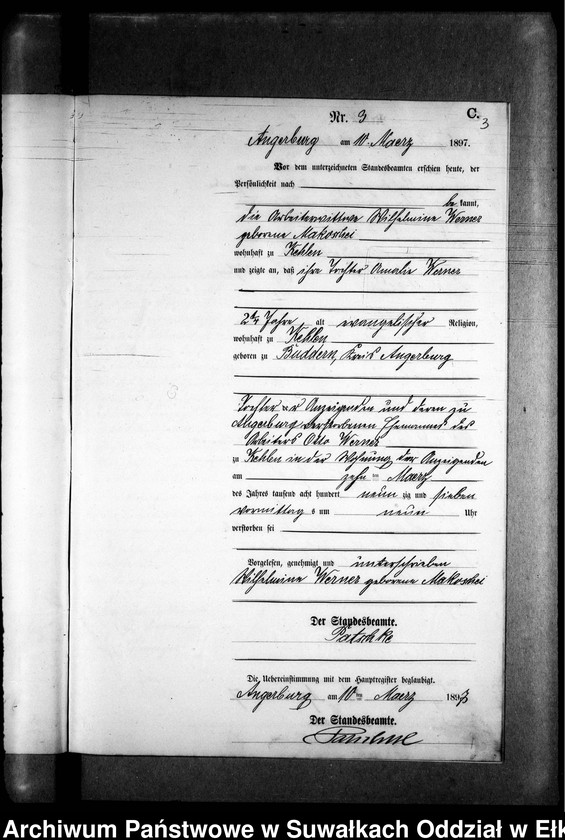 Nr. 3
C.
3
Angerburg am 10. Maerz 1897.
Vor dem unterzeichneten Standesbeamten erschien heute, der
Persönlichkeit nach
be kannt,
die Arbeiterwittwe Wilhelmine Werner
geborene Makoschei
wohnhaft zu Kehlen
und zeigte an, daß ihre Tochter Amalie Werner
2 1/4 Jahre alt evangelischer Religion,
wohnhaft zu Kehlen
geboren zu Buddern, Kreis Angerburg
Tochter der Anzeigenden und deren zu
Angerburg verstorbenen Ehemannes des
Arbeiters Otto Werner
zu Kehlen in der Wohnung der Anzeigenden
am zehn ten Maerz
des Jahres tausend acht hundert neun zig und sieben
vormittag s um neun Uhr
verstorben sei
Vorgelesen, genehmigt und unterschrieben
Wilhelmine Werner geborene Makoschei
Der Standesbeamte.
Patschke
Die Uebereinstimmung mit dem Hauptregister beglaubigt.
Angerburg am 10 ten Maerz 1897
Der Standesbeamte.
Archiwum Państwowe w Suwałkach Oddział w Ełk